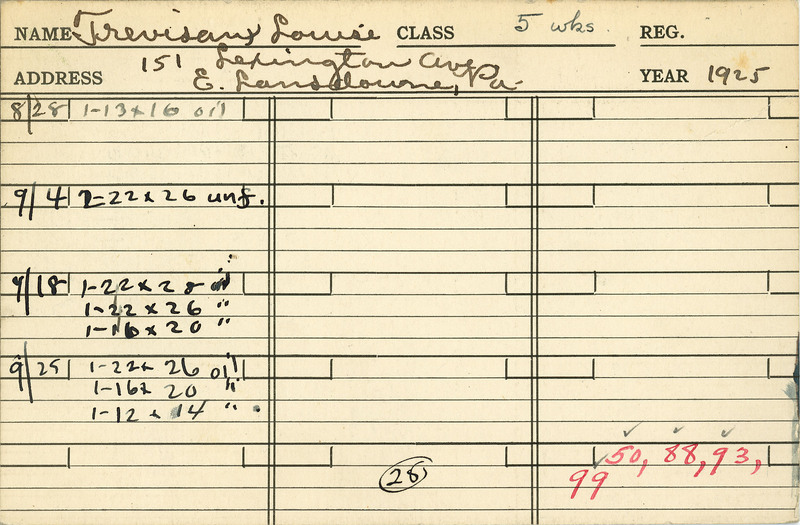 NAME Trevisan, Louise CLASS 5 wks. REG.
ADDRESS 151 Lexington Ave
E. Lansdowne, Pa. YEAR 1925
8/28 1-13x16 oil
9/4 2-22x26 unf.
9/18 1-22x28 oil
1-22x26 "
1-16x20 "
9/25 1-22x26 oil
1-16x20 "
1-12x14 "
28
50, 88, 93,
99